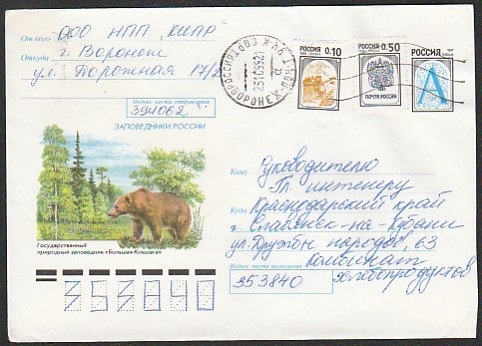 От кого ООО НПП „КИПР"
Откуда г. Воронеж
ул. Дорожная 17/2
Индекс места отправления
394062
ЗАПОВЕДНИКИ РОССИИ
РОССИЯ 0.10
РОССИЯ 0.50
ПОЧТА РОССИИ
РОССИЯ
А
ВОРОНЕЖ
Государственный
природный заповедник «Большая Кокшага»
Кому Руководителю
Гл. инженеру
Куда Краснодарский край
г. Славянск-на-Кубани
ул. Дружбы народов, 63
Комбинат
хлебопродуктов
Индекс места назначения
353840
353840